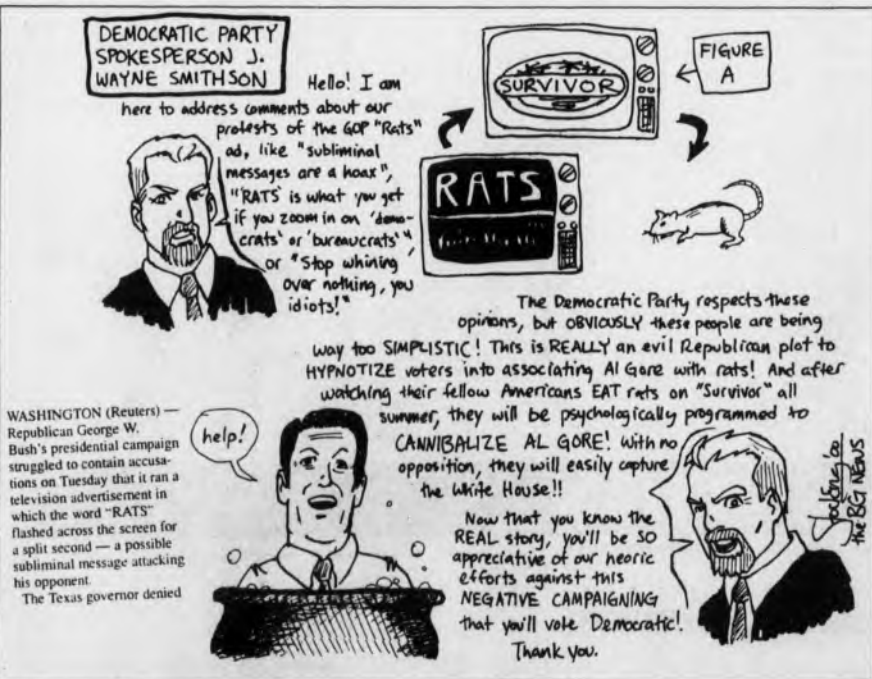 DEMOCRATIC PARTY
SPOKESPERSON J.
WAYNE SMITHSON
Hello! I am
here to address comments about our
protests of the GOP "Rats"
ad, like "subliminal
messages are a hoax",
"'RATS' is what you get
if you zoom in on 'demo-
crats' or 'bureaucrats'",
or "Stop whining
over nothing, you
idiots!"
SURVIVOR
FIGURE
A
RATS
The Democratic Party respects these
opinions, but OBVIOUSLY these people are being
way too SIMPLISTIC! This is REALLY an evil Republican plot to
HYPNOTIZE voters into associating Al Gore with rats! And after
watching their fellow Americans EAT rats on "Survivor" all
summer, they will be psychologically programmed to
CANNIBALIZE AL GORE! With no
opposition, they will easily capture
the White House!!
Now that you know the
REAL story, you'll be SO
appreciative of our heoric
efforts against this
NEGATIVE CAMPAIGNING
that you'll vote Democratic!
Thank you.
help!
WASHINGTON (Reuters) —
Republican George W.
Bush's presidential campaign
struggled to contain accusa-
tions on Tuesday that it ran a
television advertisement in
which the word "RATS"
flashed across the screen for
a split second — a possible
subliminal message attacking
his opponent.
The Texas governor denied
'00
the BG NEWS